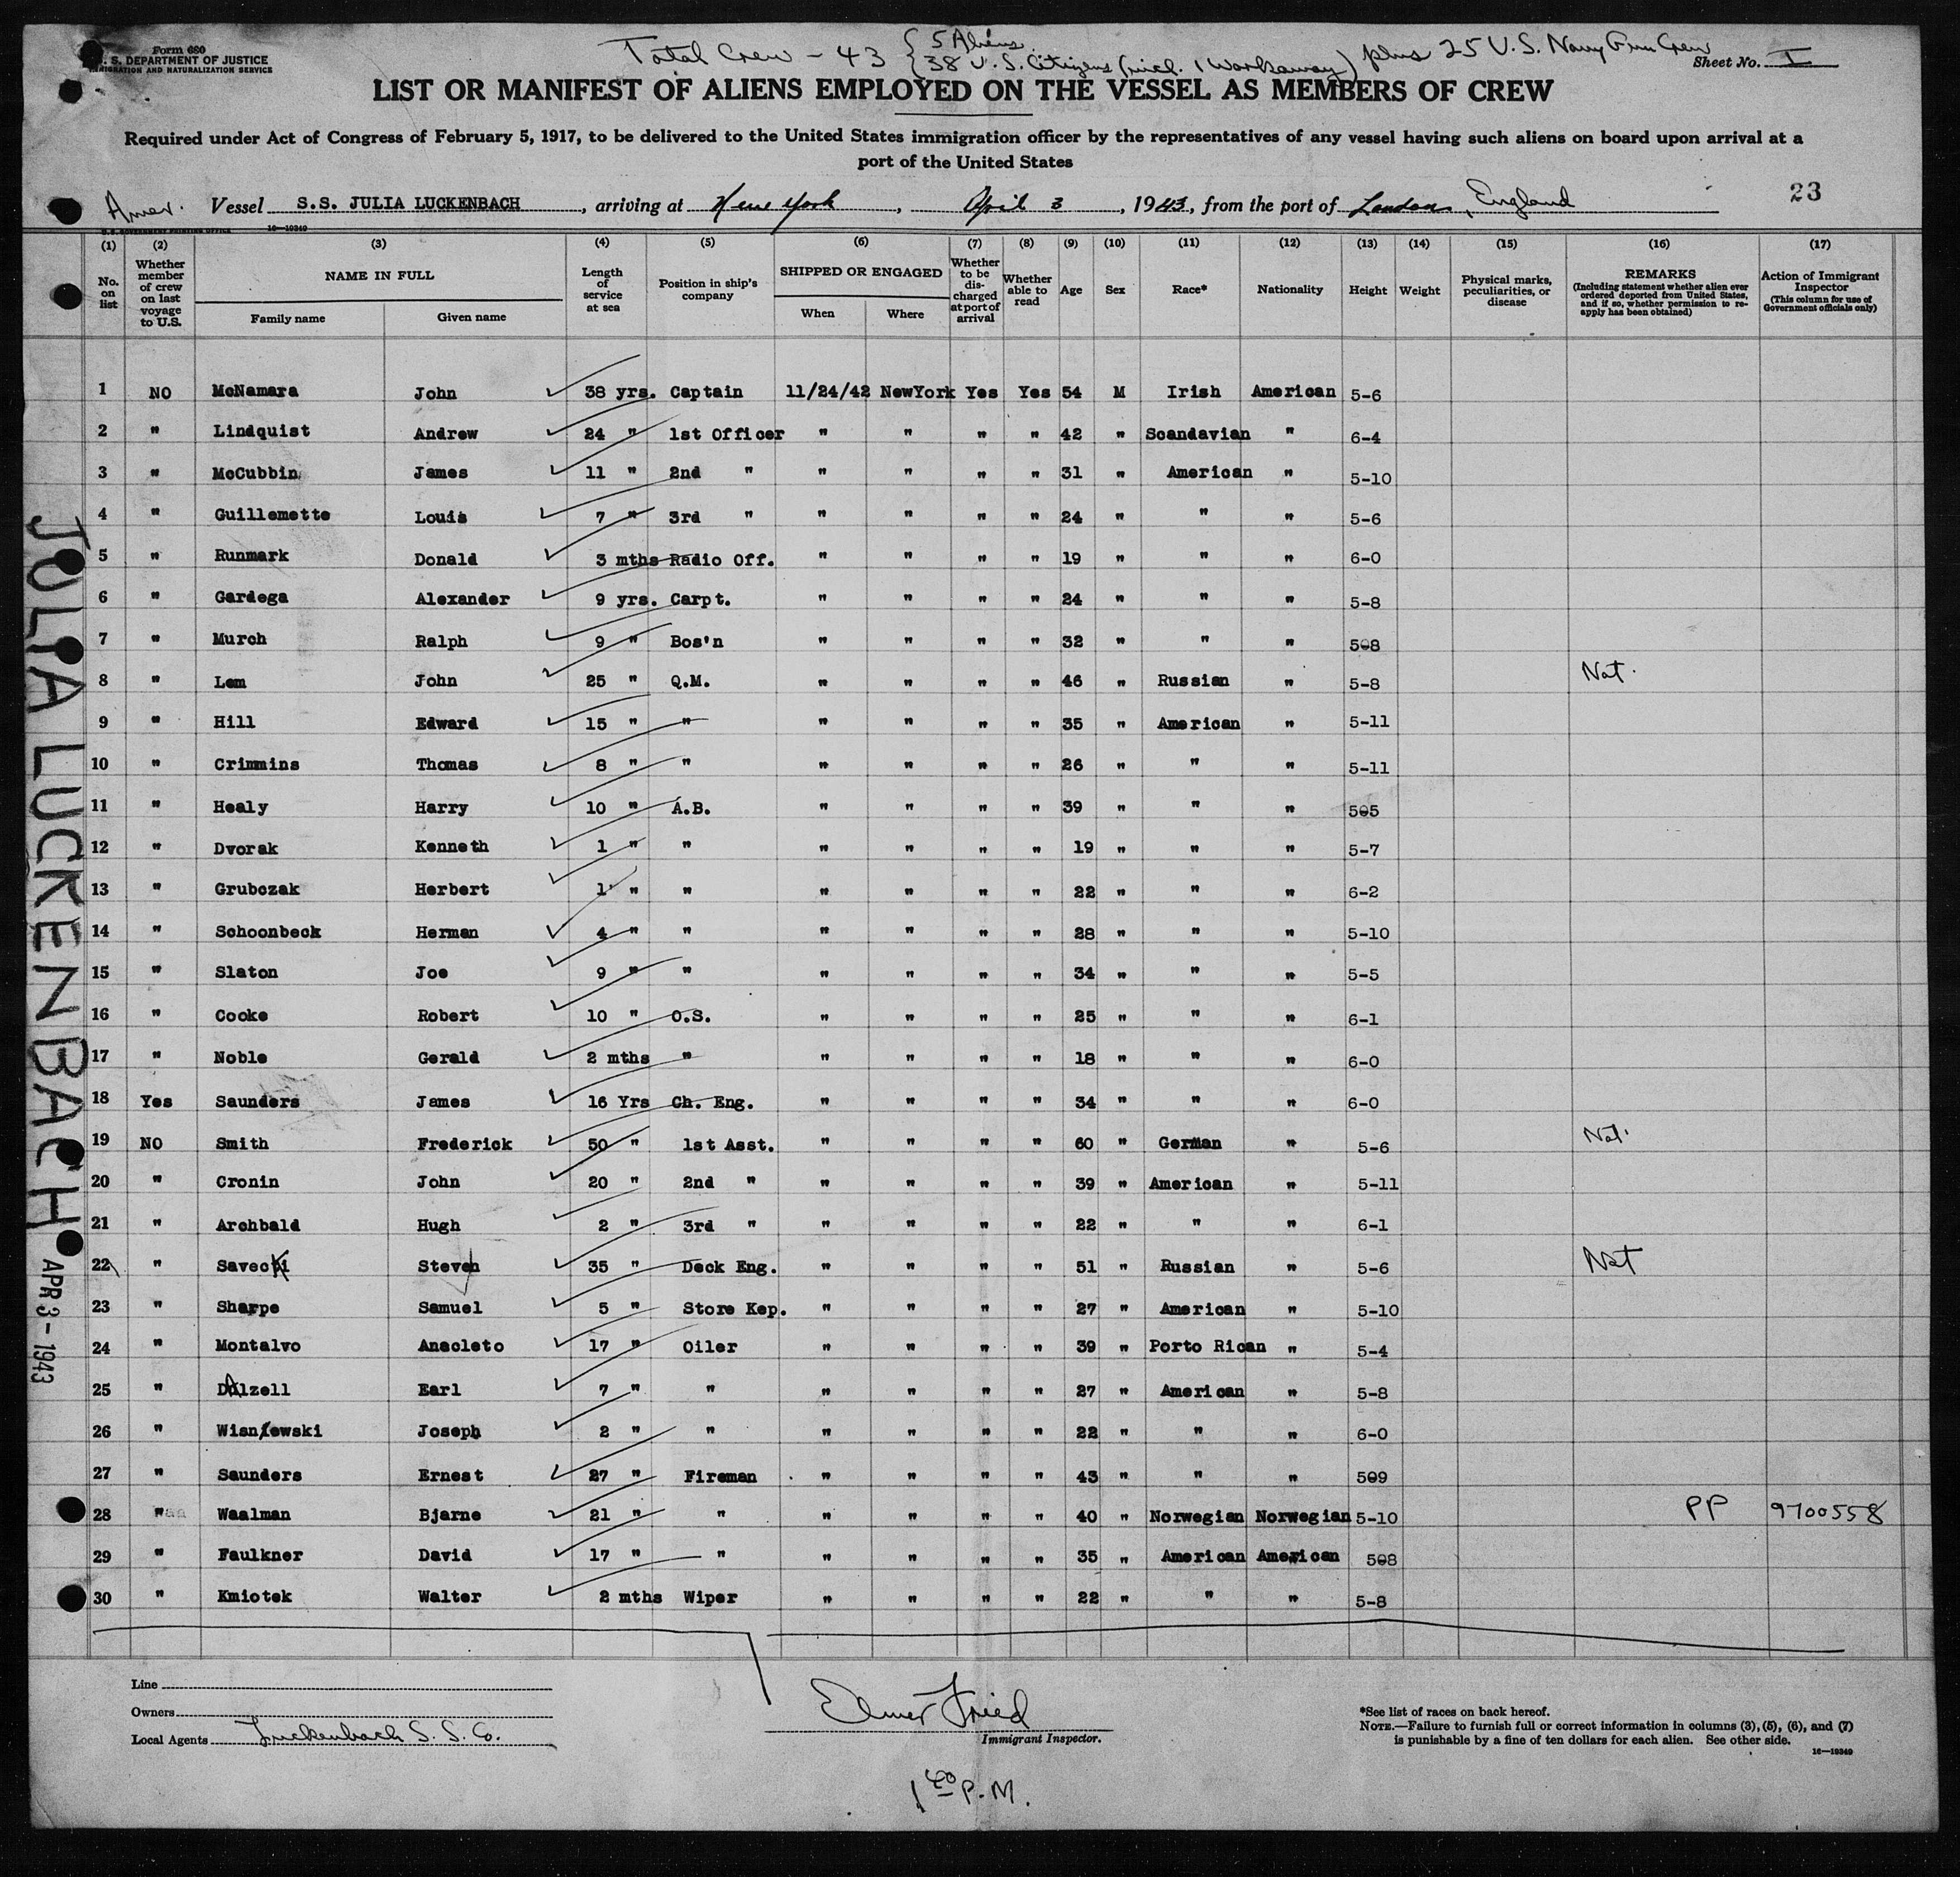 Form 680
U. S. DEPARTMENT OF JUSTICE
IMMIGRATION AND NATURALIZATION SERVICE
Total Crew - 43 { 5 Aliens
{ 38 U.S. Citizens (incl. 1 Workaway) plus 25 U.S. Navy Gun Crew
Sheet No. I
LIST OR MANIFEST OF ALIENS EMPLOYED ON THE VESSEL AS MEMBERS OF CREW
Required under Act of Congress of February 5, 1917, to be delivered to the United States immigration officer by the representatives of any vessel having such aliens on board upon arrival at a
port of the United States
Amer. Vessel S.S. JULIA LUCKENBACH, arriving at New York, April 3, 1943, from the port of London, England
23
U.S. GOVERNMENT PRINTING OFFICE 16—19349
(1) (2) (3) (4) (5) (6) (7) (8) (9) (10) (11) (12) (13) (14) (15) (16) (17)
No. on list | Whether member of crew on last voyage to U.S. | NAME IN FULL Family name Given name | Length of service at sea | Position in ship's company | SHIPPED OR ENGAGED When Where | Whether to be discharged at port of arrival | Whether able to read | Age | Sex | Race* | Nationality | Height | Weight | Physical marks, peculiarities, or disease | REMARKS (Including statement whether alien ever ordered deported from United States, and if so, whether permission to reapply has been obtained) | Action of Immigrant Inspector (This column for use of Government officials only)
1 NO McNamara John 38 yrs. Captain 11/24/42 NewYork Yes Yes 54 M Irish American 5-6
2 " Lindquist Andrew 24 " 1st Officer " " " " 42 " Scandavian " 6-4
3 " McCubbin James 11 " 2nd " " " " " 31 " American " 5-10
4 " Guillemette Louis 7 " 3rd " " " " " 24 " " " 5-6
5 " Runmark Donald 3 mths Radio Off. " " " " 19 " " " 6-0
6 " Gardega Alexander 9 yrs. Carpt. " " " " 24 " " " 5-8
7 " Murch Ralph 9 " Bos'n " " " " 32 " " " 5-8
8 " Lem John 25 " Q.M. " " " " 46 " Russian " 5-8 Nat.
9 " Hill Edward 15 " " " " " " 35 " American " 5-11
10 " Crimmins Thomas 8 " " " " " " 26 " " " 5-11
11 " Healy Harry 10 " A.B. " " " " 39 " " " 5-5
12 " Dvorak Kenneth 1 " " " " " " 19 " " " 5-7
13 " Grubczak Herbert 1 " " " " " " 22 " " " 6-2
14 " Schoonbeck Herman 4 " " " " " " 28 " " " 5-10
15 " Slaton Joe 9 " " " " " " 34 " " " 5-5
16 " Cooke Robert 10 " O.S. " " " " 25 " " " 6-1
17 " Noble Gerald 2 mths " " " " " 18 " " " 6-0
18 Yes Saunders James 16 Yrs Ch. Eng. " " " " 34 " " " 6-0
19 NO Smith Frederick 50 " 1st Asst. " " " " 60 " German " 5-6 Nat.
20 " Cronin John 20 " 2nd " " " " " 39 " American " 5-11
21 " Archbald Hugh 2 " 3rd " " " " " 22 " " " 6-1
22 " Savecki Steven 35 " Deck Eng. " " " " 51 " Russian " 5-6 Nat
23 " Sharpe Samuel 5 " Store Kep. " " " " 27 " American " 5-10
24 " Montalvo Anacleto 17 " Oiler " " " " 39 " Porto Rican " 5-4
25 " DAlzell Earl 7 " " " " " " 27 " American " 5-8
26 " Wisniewski Joseph 2 " " " " " " 22 " " " 6-0
27 " Saunders Ernest 27 " Fireman " " " " 43 " " " 5-9
28 " Waalman Bjarne 21 " " " " " " 40 " Norwegian Norwegian 5-10 PP 9700558
29 " Faulkner David 17 " " " " " " 35 " American American 5-8
30 " Kmiotek Walter 2 mths Wiper " " " " 22 " " " 5-8
JULIA LUCKENBACH
APR 3 - 1943
Line
Owners
Local Agents Luckenbach S. S. Co.
Elmer Fried
Immigrant Inspector.
1 40 P.M.
*See list of races on back hereof.
NOTE.—Failure to furnish full or correct information in columns (3), (5), (6), and (7)
is punishable by a fine of ten dollars for each alien. See other side.
16—19349